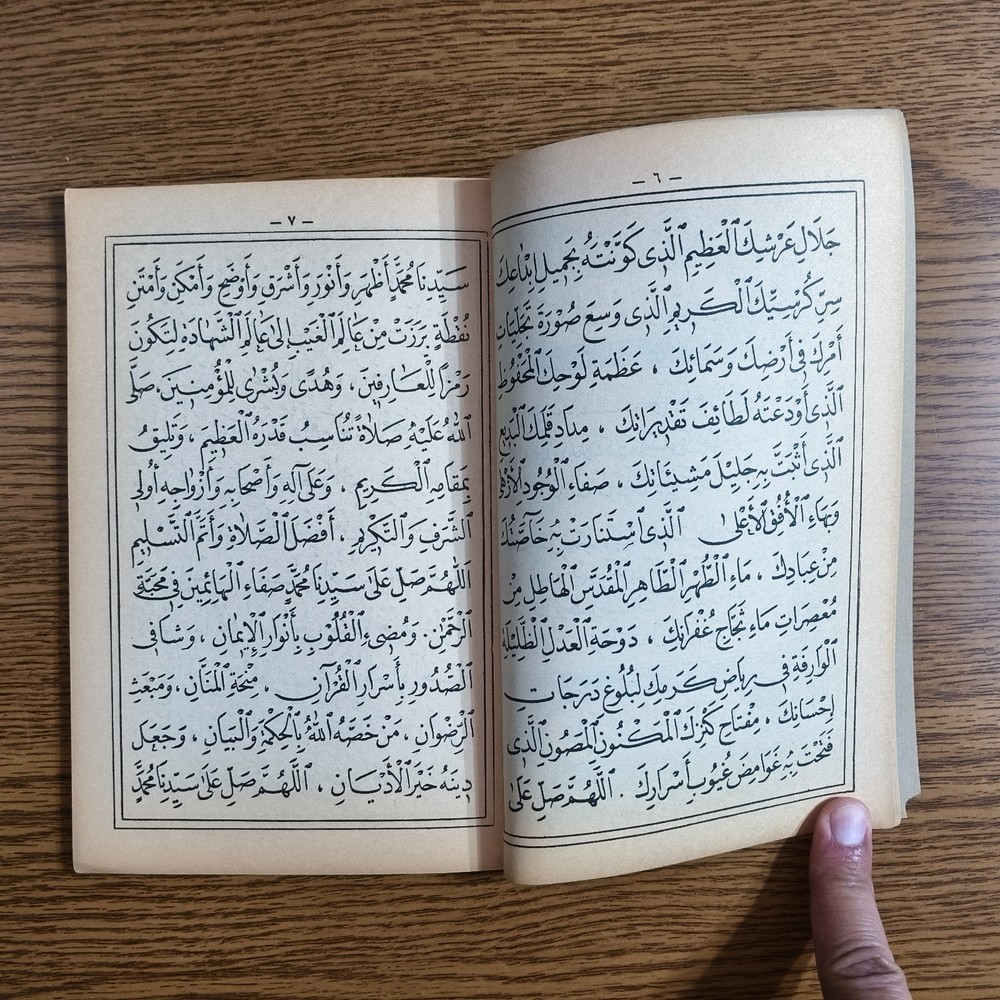 – ٦ –
جَلَالِ عَرْشِكَ الْعَظِيمِ الَّذِى كَوَّنْتَهُ بِجَمِيلِ إِبْدَاعِكَ
سِرِّ كُرْسِيِّكَ الْكَرِيمِ الَّذِى وَسِعَ صُورَةَ تَجَلِّيَاتِ
أَمْرِكَ فِى أَرْضِكَ وَسَمَائِكَ ، عَظَمَةِ لَوْحِكَ الْمَحْفُوظِ
الَّذِى أَوْدَعْتَهُ لَطَائِفَ تَقْدِيرَاتِكَ ، مِدَادِ قَلَمِكَ الْبَدِيعِ
الَّذِى أَثْبَتَّ بِهِ جَلِيلَ مَشِيئَاتِكَ ، صَفَاءِ الْوُجُودِ الْأَزْهَى
وَبَهَاءِ الْأُفُقِ الْأَعْلَى الَّذِى اسْتَنَارَتْ بِهِ خَاصَّتُكَ
مِنْ عِبَادِكَ ، مَاءِ الطُّهْرِ الطَّاهِرِ الْمُقَدَّسِ الْهَاطِلِ مِنْ
مُعْصِرَاتِ مَاءِ ثَجَّاجِ غُفْرَانِكَ ، دَوْحَةِ الْعَدْلِ الظَّلِيلَةِ
الْوَارِفَةِ فِى رِيَاضِ كَرَمِكَ لِبُلُوغِ دَرَجَاتِ
إِحْسَانِكَ ، مِفْتَاحِ كَنْزِكَ الْمَكْنُونِ الْمَصُونِ الَّذِى
فَتَحْتَ بِهِ غَوَامِضَ غُيُوبِ أَسْرَارِكَ . اللَّهُمَّ صَلِّ عَلَى
– ٧ –
سَيِّدِنَا مُحَمَّدٍ أَظْهَرِ وَأَنْوَرِ وَأَشْرَقِ وَأَوْضَحِ وَأَمْكَنِ وَأَمْتَنِ
نُقْطَةٍ بَرَزَتْ مِنْ عَالَمِ الْغَيْبِ إِلَى عَالَمِ الشَّهَادَةِ لِتَكُونَ
رَمْزاً لِلْعَارِفِينَ ، وَهُدًى وَبُشْرَى لِلْمُؤْمِنِينَ ، صَلَّى
اللهُ عَلَيْهِ صَلَاةً تُنَاسِبُ قَدْرَهُ الْعَظِيمَ ، وَتَلِيقُ
بِمَقَامِهِ الْكَرِيمِ ، وَعَلَى آلِهِ وَأَصْحَابِهِ وَأَزْوَاجِهِ أُولِى
الشَّرَفِ وَالتَّكْرِيمِ ، أَفْضَلَ الصَّلَاةِ وَأَتَمَّ التَّسْلِيمِ
اللَّهُمَّ صَلِّ عَلَى سَيِّدِنَا مُحَمَّدٍ صَفَاءِ الْهَائِمِينَ فِى مَحَبَّةِ
الرَّحْمٰنِ . وَمُضِىءِ الْقُلُوبِ بِأَنْوَارِ الْإِيمَانِ ، وَشَافِى
الصُّدُورِ بِأَسْرَارِ الْقُرْآنِ ، مِنْحَةِ الْمَنَّانِ ، وَمَبْعَثِ
الرِّضْوَانِ ، مَنْ خَصَّهُ اللهُ بِالْحِكْمَةِ وَالْبَيَانِ ، وَجَعَلَ
دِينَهُ خَيْرَ الْأَدْيَانِ ، اللَّهُمَّ صَلِّ عَلَى سَيِّدِنَا مُحَمَّدٍ